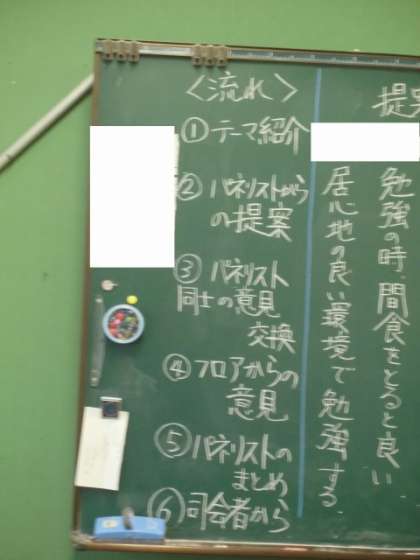 <流れ>
①テーマ紹介
②パネリストから
の提案
③パネリスト
同士の意見
交換
④フロアからの
意見
⑤パネリストの
まとめ
⑥司会者から
提案
勉強の時、間食をとると良い
居心地の良い環境で勉強する